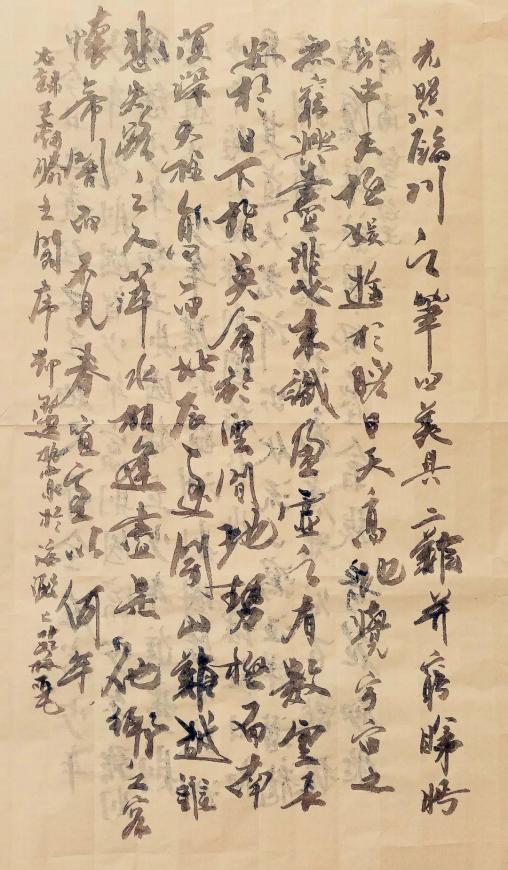 光照臨川之筆四美具二難并窮睇眄
於中天極娛遊於暇日天高地覺宇宙之
無窮興盡悲來識盈虛之有數望長
安於日下指吳會於雲間地勢極而南
溟深天柱高而北辰遠關山難越誰
悲失路之人萍水相逢盡是他鄉之客
懷帝閽而不見奉宣室以何年
右錄王勃滕王閣序 於海